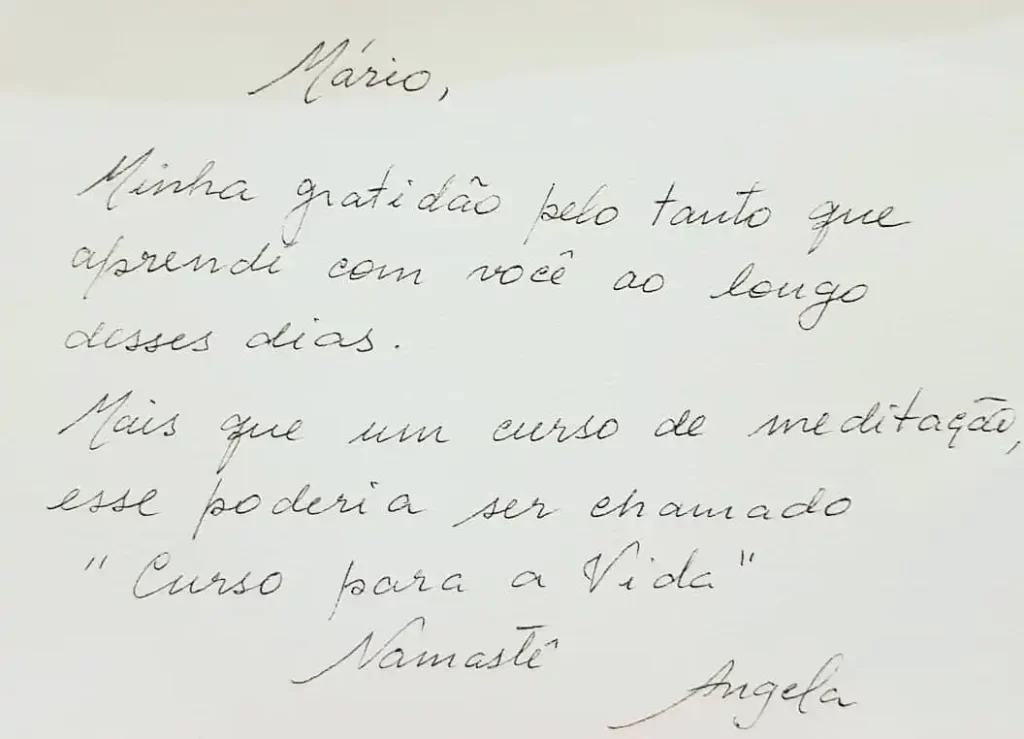 Mário,
Minha gratidão pelo tanto que
aprendi com você ao longo
desses dias.
Mais que um curso de meditação,
esse poderia ser chamado
"Curso para a Vida"
Namastê
Angela